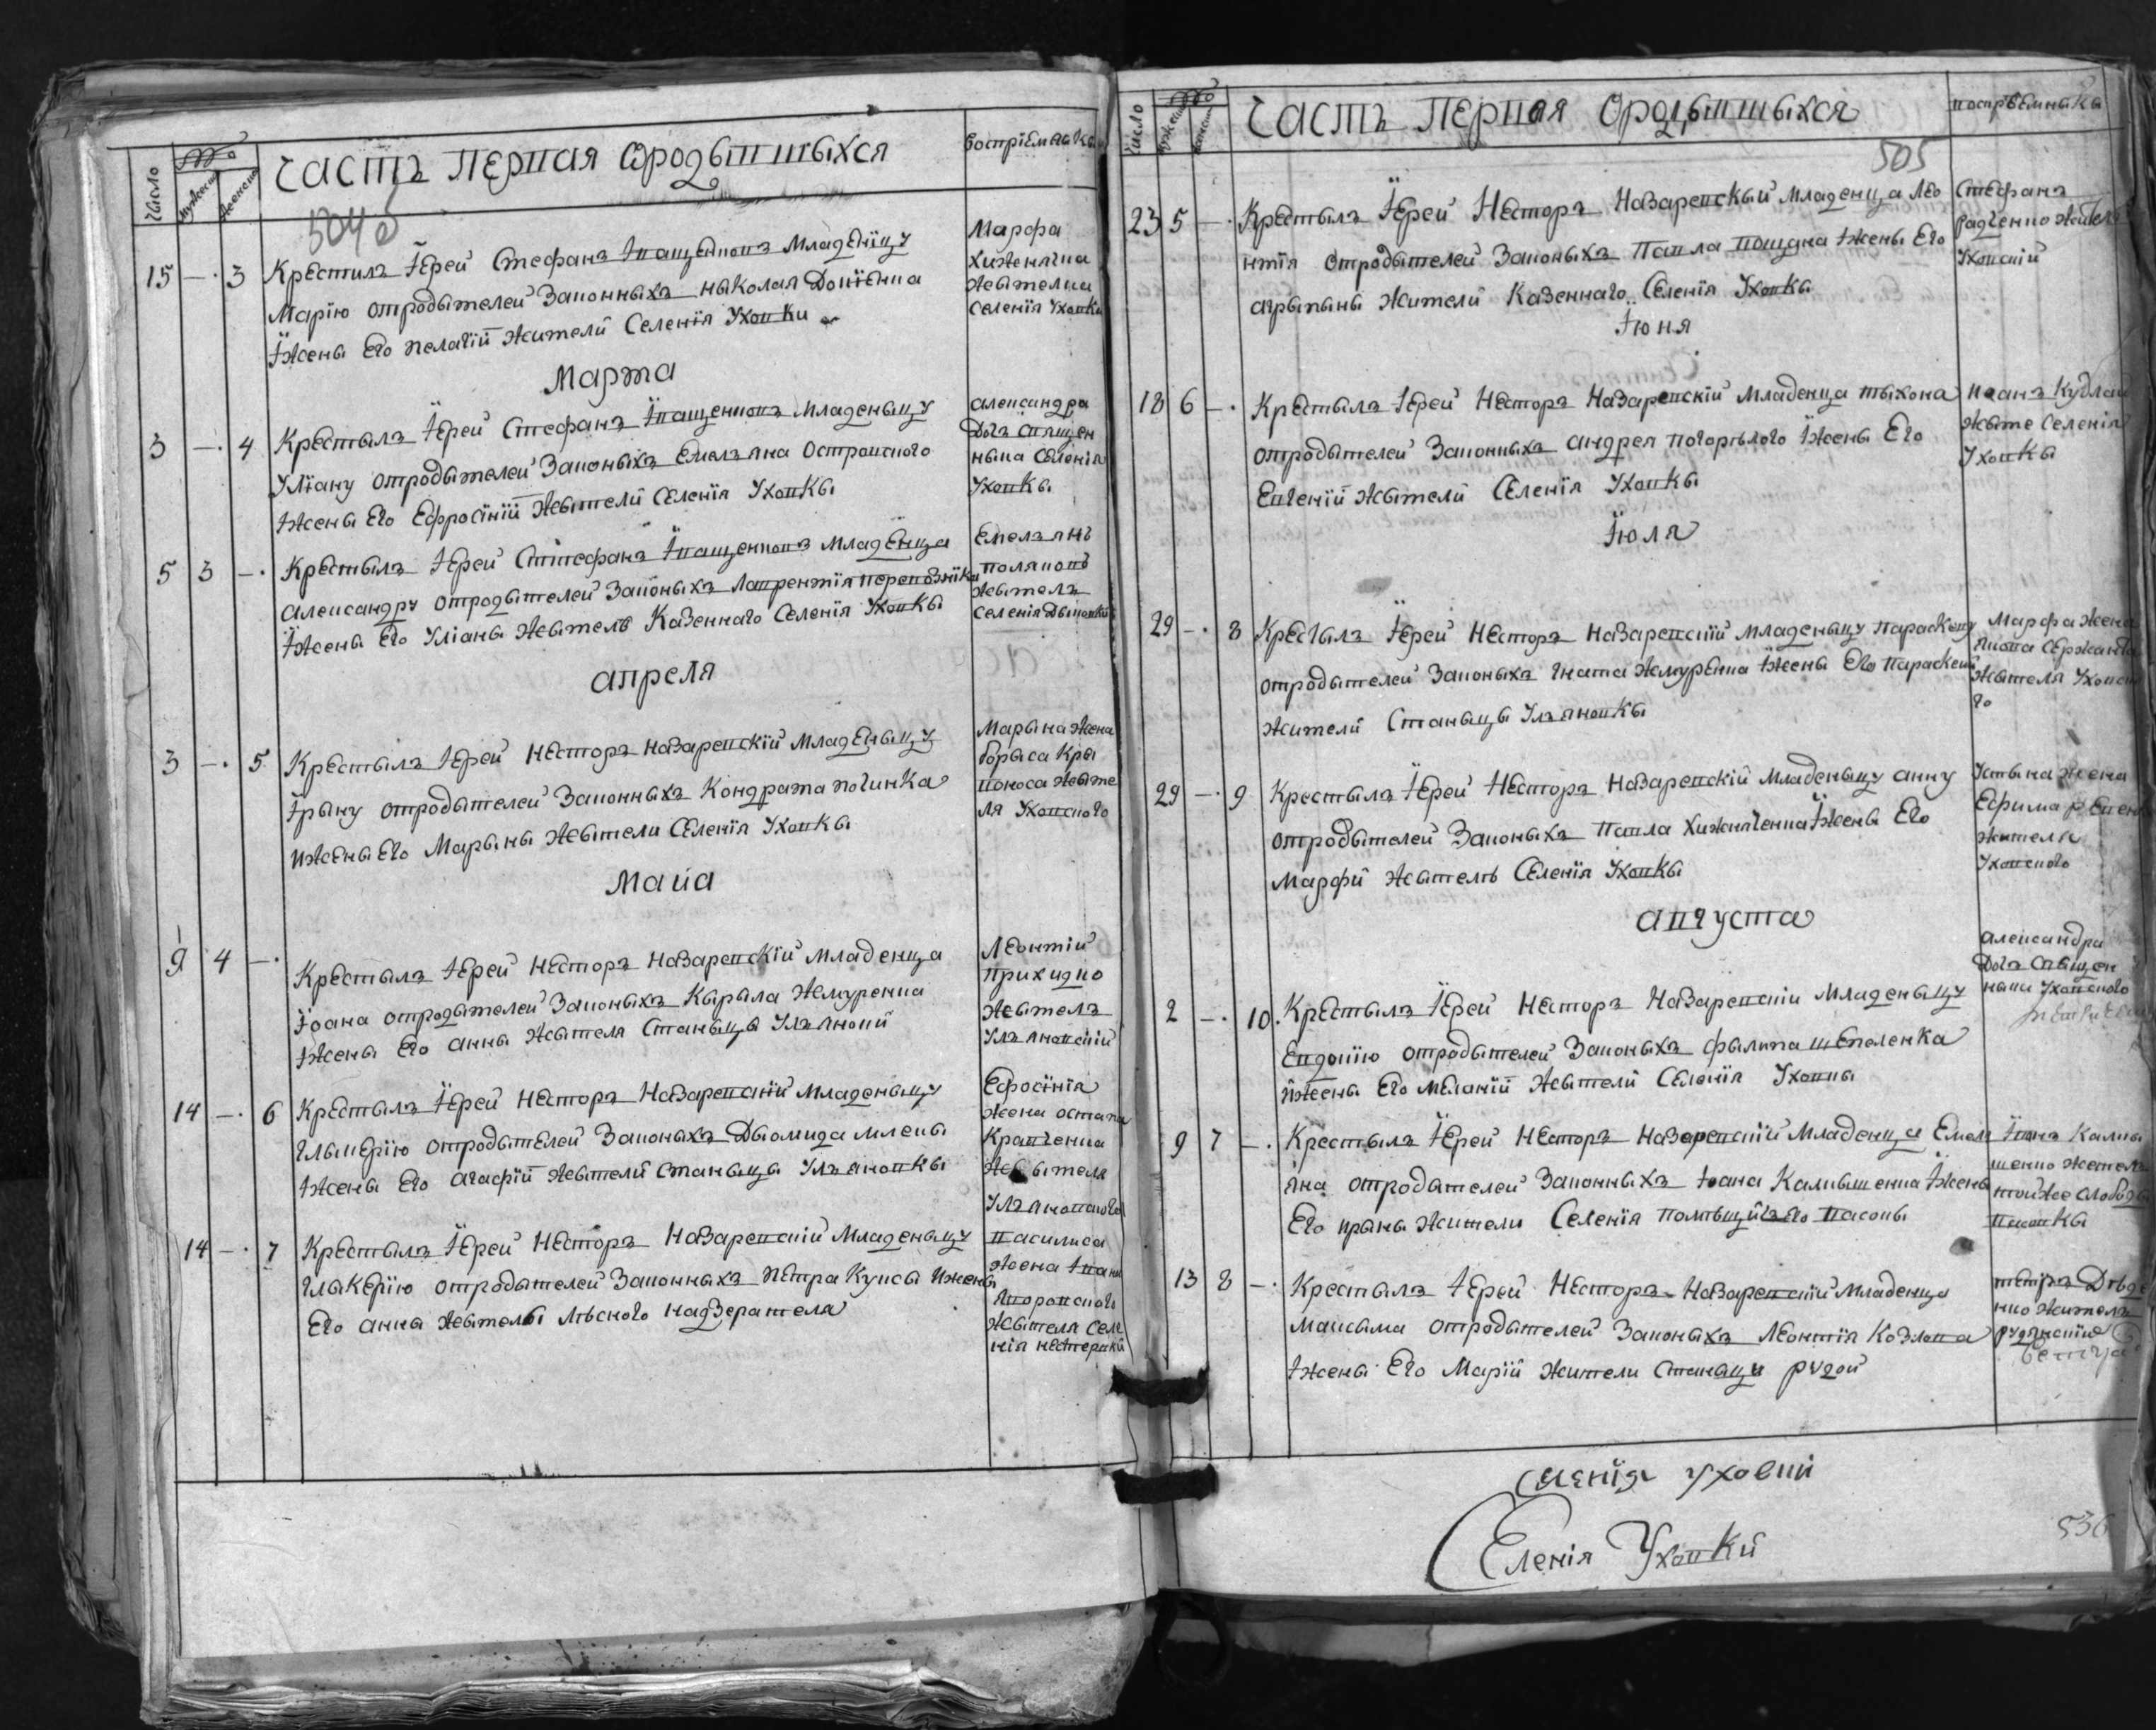 Число
Мужеска
Женска
Часть первая ородывшыхся
Воспріемныки
504 б
15 — 3 Крестилъ Іерей Стефанъ Іващенковъ младенїцу
Марію отродытелей Законныхъ ныколая Доніенка
Їжены Его пелагїй жители Селенїя Уховки
Марфа
Хиженячка
жытелка
Селенія Уховки
Марта
3 — 4 Крестылъ Іерей Стефанъ Іващенковъ младеныцу
Улїану отродытелей Законыхъ Емелъяна Островского
Ижены Его Ефросїнїй жытели Селенїя Уховкы
александра
Дочъ Священ
ныка Селенія
Уховкы
5 3 — Крестылъ Іерей Стефанъ Іващенковъ младенца
александру отродытелей Законыхъ Лаврентїя перевозніка
Їжены Его Уліаны жытелѣ Казеннаго Селенїя Уховкы
Емелъянъ
поляковъ
жытелъ
Селенія
апреля
3 — 5 Крестылъ Іерей Несторъ Назаревскїй младеныцу
Їрыну отродытелей Законныхъ Кондрата починка
ижены Его Марыны жытели Селенїя Уховкы
Марына жена
борыса Кры
воноса жыте
ля Уховского
Маиа
9 4 — Крестылъ Іерей Несторъ Назаревскїй младенца
Їоана отродытелей Законыхъ Кырыла жмуренка
Їжены Его анны жытеля Станыцы Улъяновкй
Леонтїй
прихидко
жытелъ
Улъяновскїй
14 — 6 Крестылъ Їерей Несторъ Назаревскїй младеныцу
глыкерїю отродытелей Законыхъ Дыомида
Їжены Его агафїй жытелй станыцы Улъяновкы
Ефросїнїя
жена остапа
Кравченка
жытеля
Улъяновского
14 — 7 Крестылъ Їерей Несторъ Назаревскїй младеныцу
глыкерїю отродытелей Законныхъ Петра Купсы ижены
Его анны жытелы лѣсного надзерателя
Василиса
жена Івана
Яворовского
жытеля Селе
нія
Число
Мужеска
Женска
Часть первая Ородывшыхся
воспрѣемныкы
505
23 5 — Крестылъ Їерей Несторъ Назаревскый младенца Лео
нтїя отродытелей Законыхъ Павла Їжены Его
агрыпыны жителй Казеннаго Селенїя Уховкы
Стефанъ
радченко жытель
Уховскїй
Їюня
18 6 — Крестылъ Іерей Несторъ Назаревскїй младенца тыхона
отродытелей Законныхъ андрея погорѣлого Їжены Его
Евгенїй жытелй Селенїя Уховкы
Иванъ Кудлай
жыте Селенія
Уховкы
Їюля
29 — 8 Крестылъ Їерей Несторъ Назаревскїй младеныцу параскеву
отродытелей Законыхъ Їгната жмуренка Їжены Его параскевй
жителй Станыцы Улъяновкы
Марфа жена
Якова Сержанта
жытеля Уховско
го
29 — 9 Крестылъ Їерей Несторъ Назаревскїй младеныцу анну
отродытелей Законыхъ Павла Хижняченка Їжены Его
Марфй жытелѣ Селенїя Уховкы
Устына жена
Ефима
жителя
Уховского
августа
2 — 10. Крестылъ Їерей Несторъ Назаревскїй младеныцу
Евдокїю отродытелей Законыхъ фылыпа шевеленка
йжены Его меланїй жытелй Селенїя Уховкы
александра
Дочъ Священ
ныки Уховского
9 7 — Крестылъ Їерей Несторъ Назаревскїй младенца Емел
їяна отродытелей Законныхъ Їоана Калнышенка Їжены
Его ирыны жители Селенїя помѣщицъкого
Їванъ Калны
шенко жетель
тойже слободы
13 8 — Крестылъ Їерей Несторъ Назаревскїй младенца
Максыма отродытелей Законыхъ Леонтїя Козлова
Їжены Его Марїй жители станыци рудой
петръ
нко жытель
рудянскїй
Селенїя Уховки
Селенїя Уховкй
536